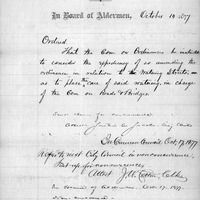 In Board of Aldermen, October 10 1877
Ordered
That the Com on Ordinances be instructed
to consider the expediency of so amending the
ordinance in relation to the Watering Streets, as
to place the care of said watering, in charge
of the Com on Roads & Bridges.
Sent down for concurrence
In Common Council Oct 17, 1877
Refer to next City Council in nonconcurrence,
Sent up for concurrence
Attest J. W. Cotton, Clerk
In Board of Aldermen Oct 17, 1877